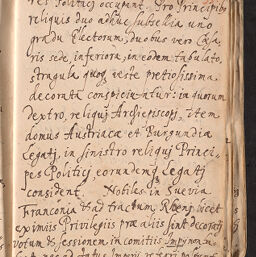 res Politici occupent. Pro Principibus
reliquis duo adhuc subsellia uno
gradu Electorum, duobus vero Cæsa,
ris sede, inferiora, in eodem tabulato,
stragula quoq veste pretiosissima
decorata conspiciuntur: in quorum
dextro, reliquj Archiepiscopj, item
domus Austriacæ et Burgundiæ
Legatj, in sinistro reliquj Princi,
pes Politicj, eorundemq Legatj
consident. Nobiles in Suevia
Franconia & ad tractum Rheni licet
eximijs Privilegijs præ alijs sint decoratj
votum & sessionem in comitijs